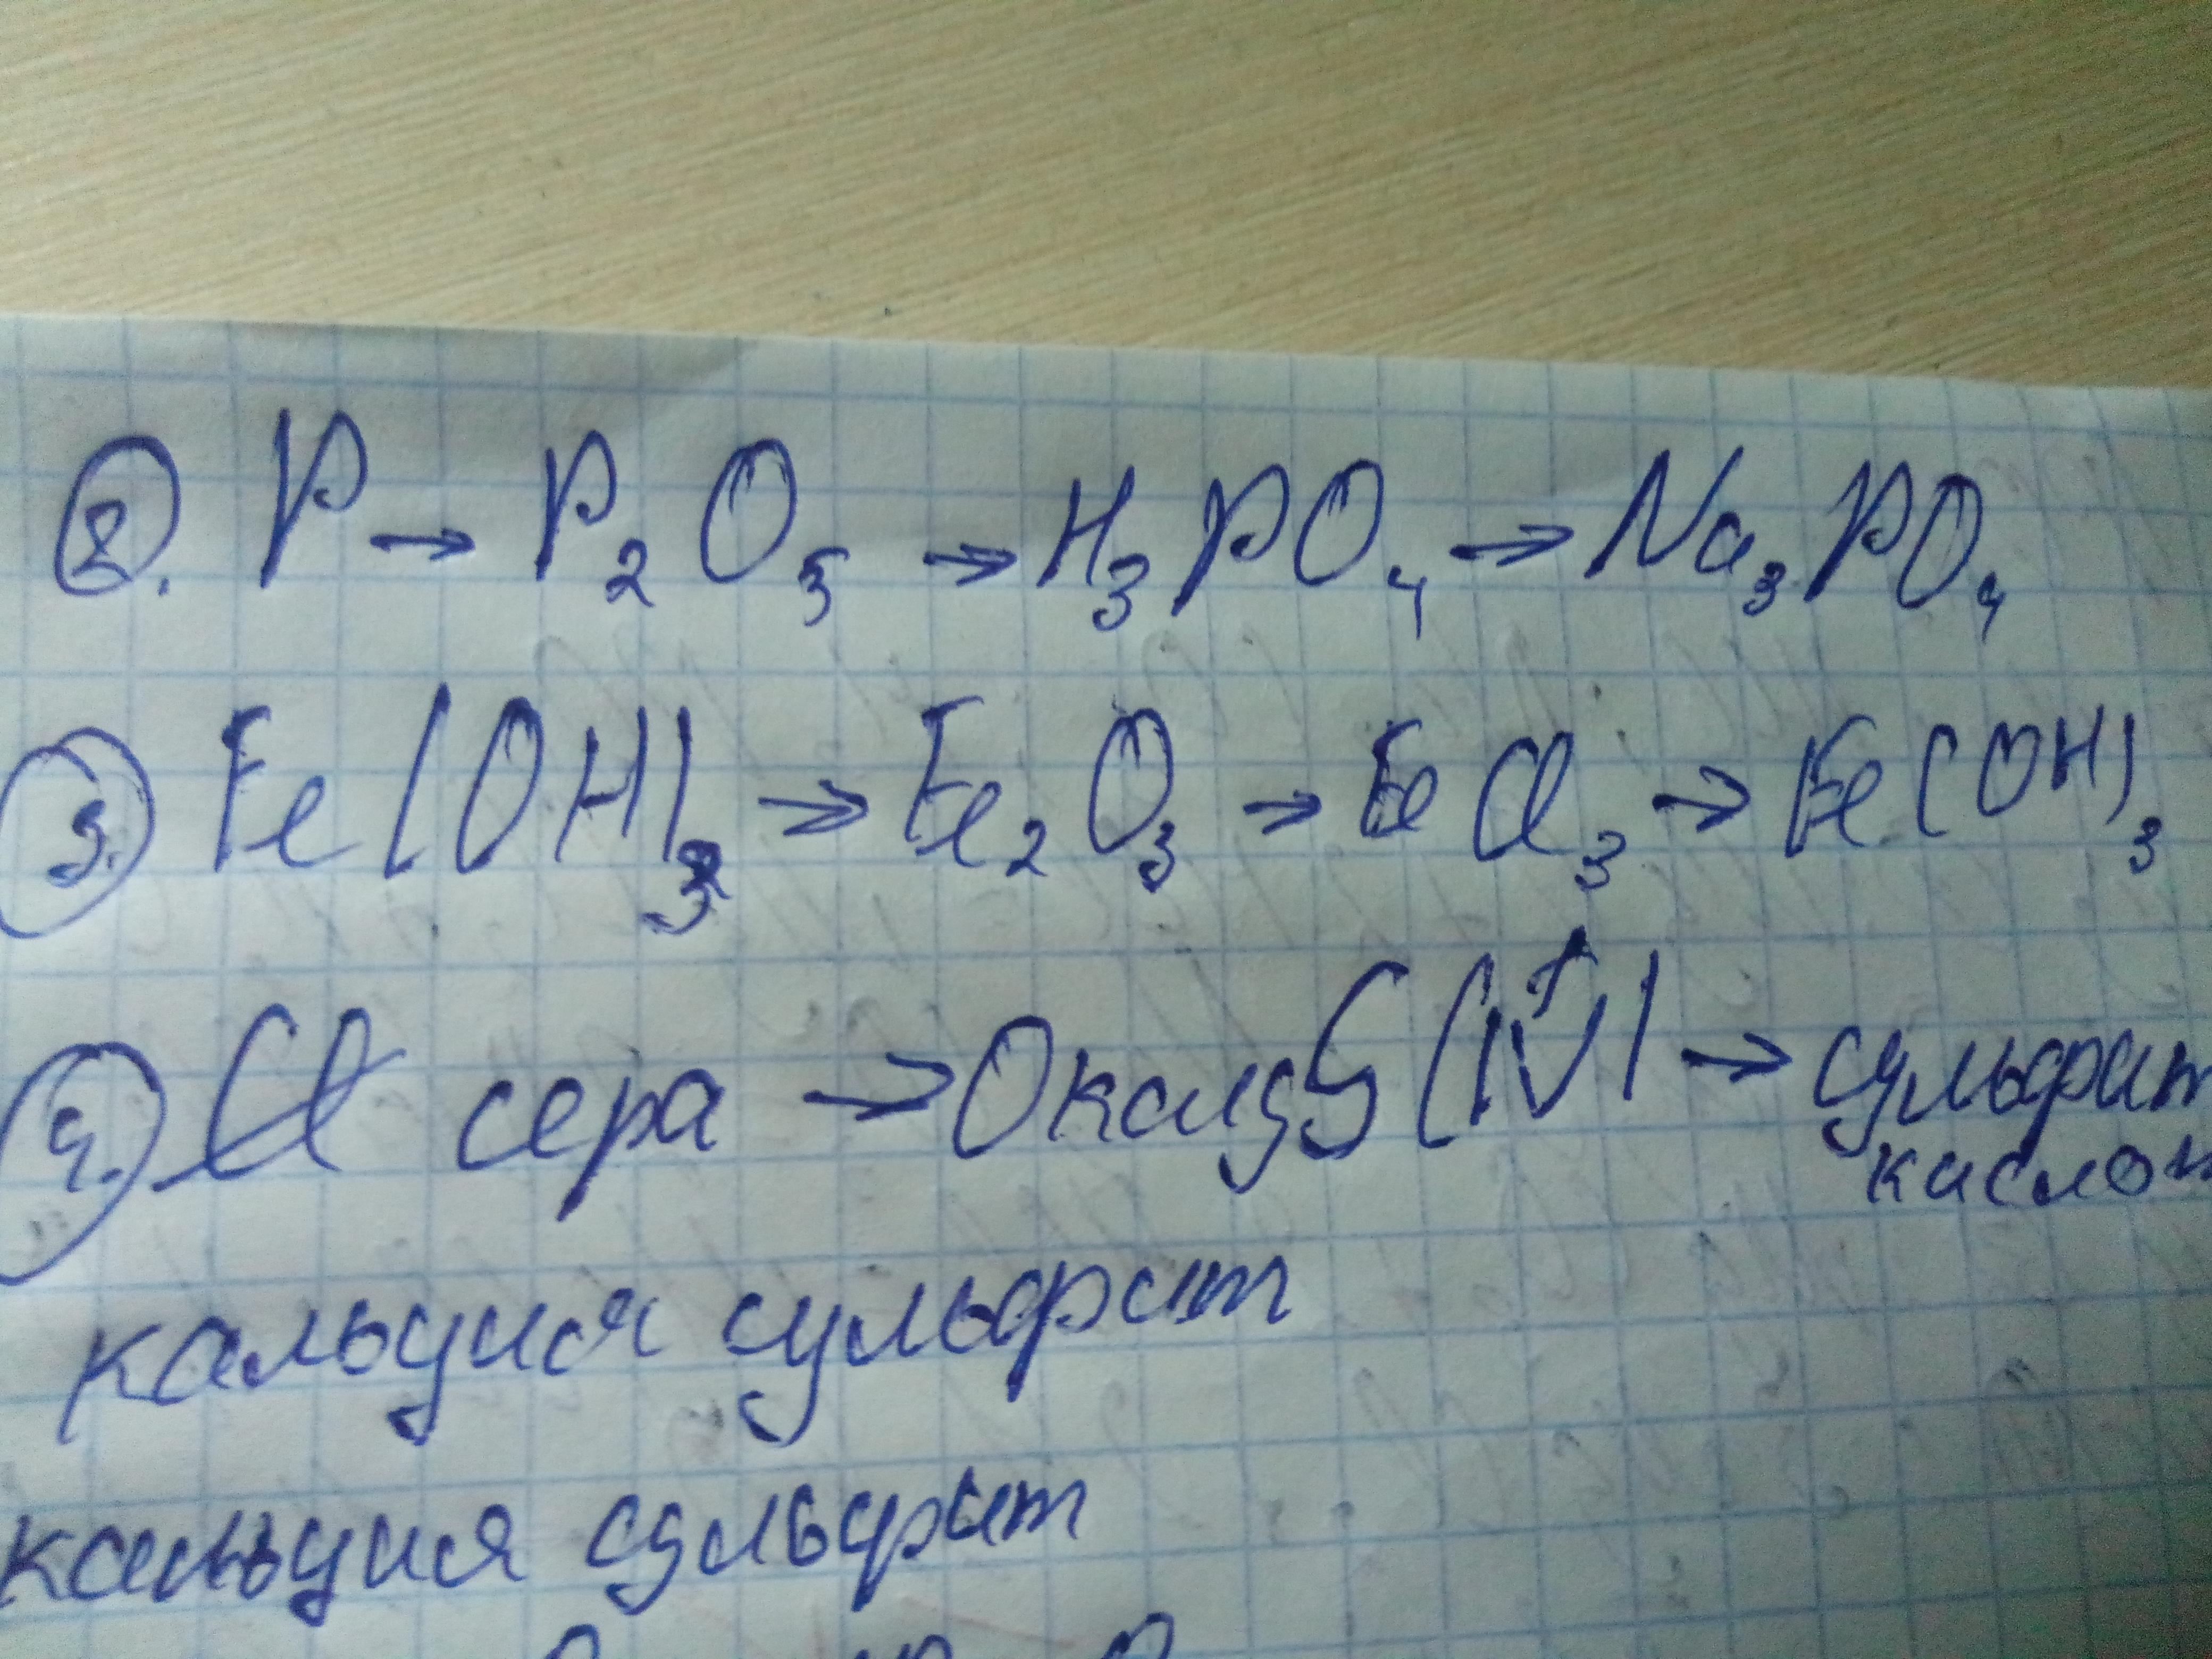 2. P → P2O5 → H3PO4 → Na3PO4
3. Fe(OH)3 → Fe2O3 → FeCl3 → Fe(OH)3
4. сера → Оксид S(IV) → сульфит
кислот
кальция сульфит
кальция сульфит